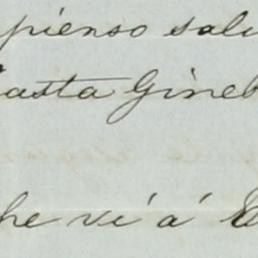 pienso sali
asta Gineb
he vi á